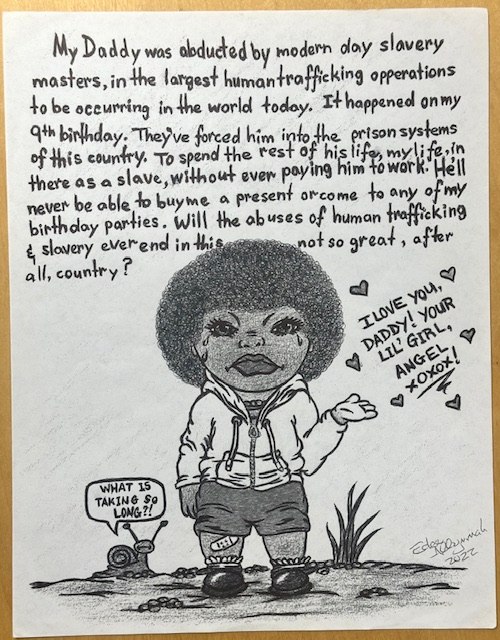 My Daddy was abducted by modern day slavery
masters, in the largest humantrafficking opperations
to be occurring in the world today. It happened on my
9th birthday. They've forced him into the prison systems
of this country. To spend the rest of his life, my life, in
there as a slave, without ever paying him to work. He'll
never be able to buy me a present or come to any of my
birthday parties. Will the abuses of human trafficking
& slavery ever end in this not so great, after
all, country?
I LOVE YOU,
DADDY! YOUR
LIL' GIRL,
ANGEL
XOXOX!
WHAT IS
TAKING SO
LONG?!
2022